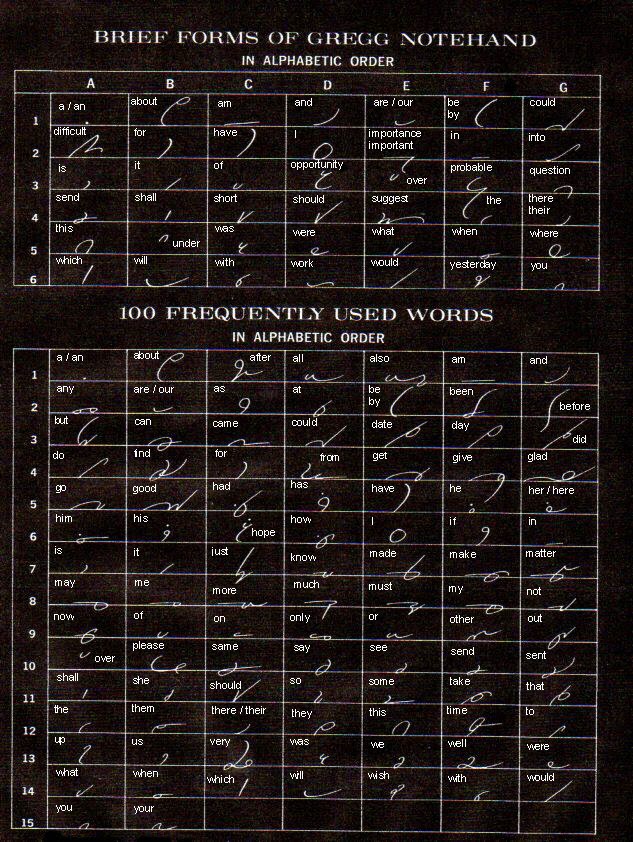 BRIEF FORMS OF GREGG NOTEHAND
IN ALPHABETIC ORDER
A B C D E F G
1 a / an about am and are / our be by could
2 difficult for have I importance important in into
3 is it of opportunity over probable question
4 send shall short should suggest the there their
5 this under was were what when where
6 which will with work would yesterday you
100 FREQUENTLY USED WORDS
IN ALPHABETIC ORDER
1 a / an about after all also am and
2 any are / our as at be by been before
3 but can came could date day did
4 do find for from get give glad
5 go good had has have he her / here
6 him his hope how I if in
7 is it just know made make matter
8 may me more much must my not
9 now of on only or other out
10 over please same say see send sent
11 shall she should so some take that
12 the them there / their they this time to
13 up us very was we well were
14 what when which will wish with would
15 you your